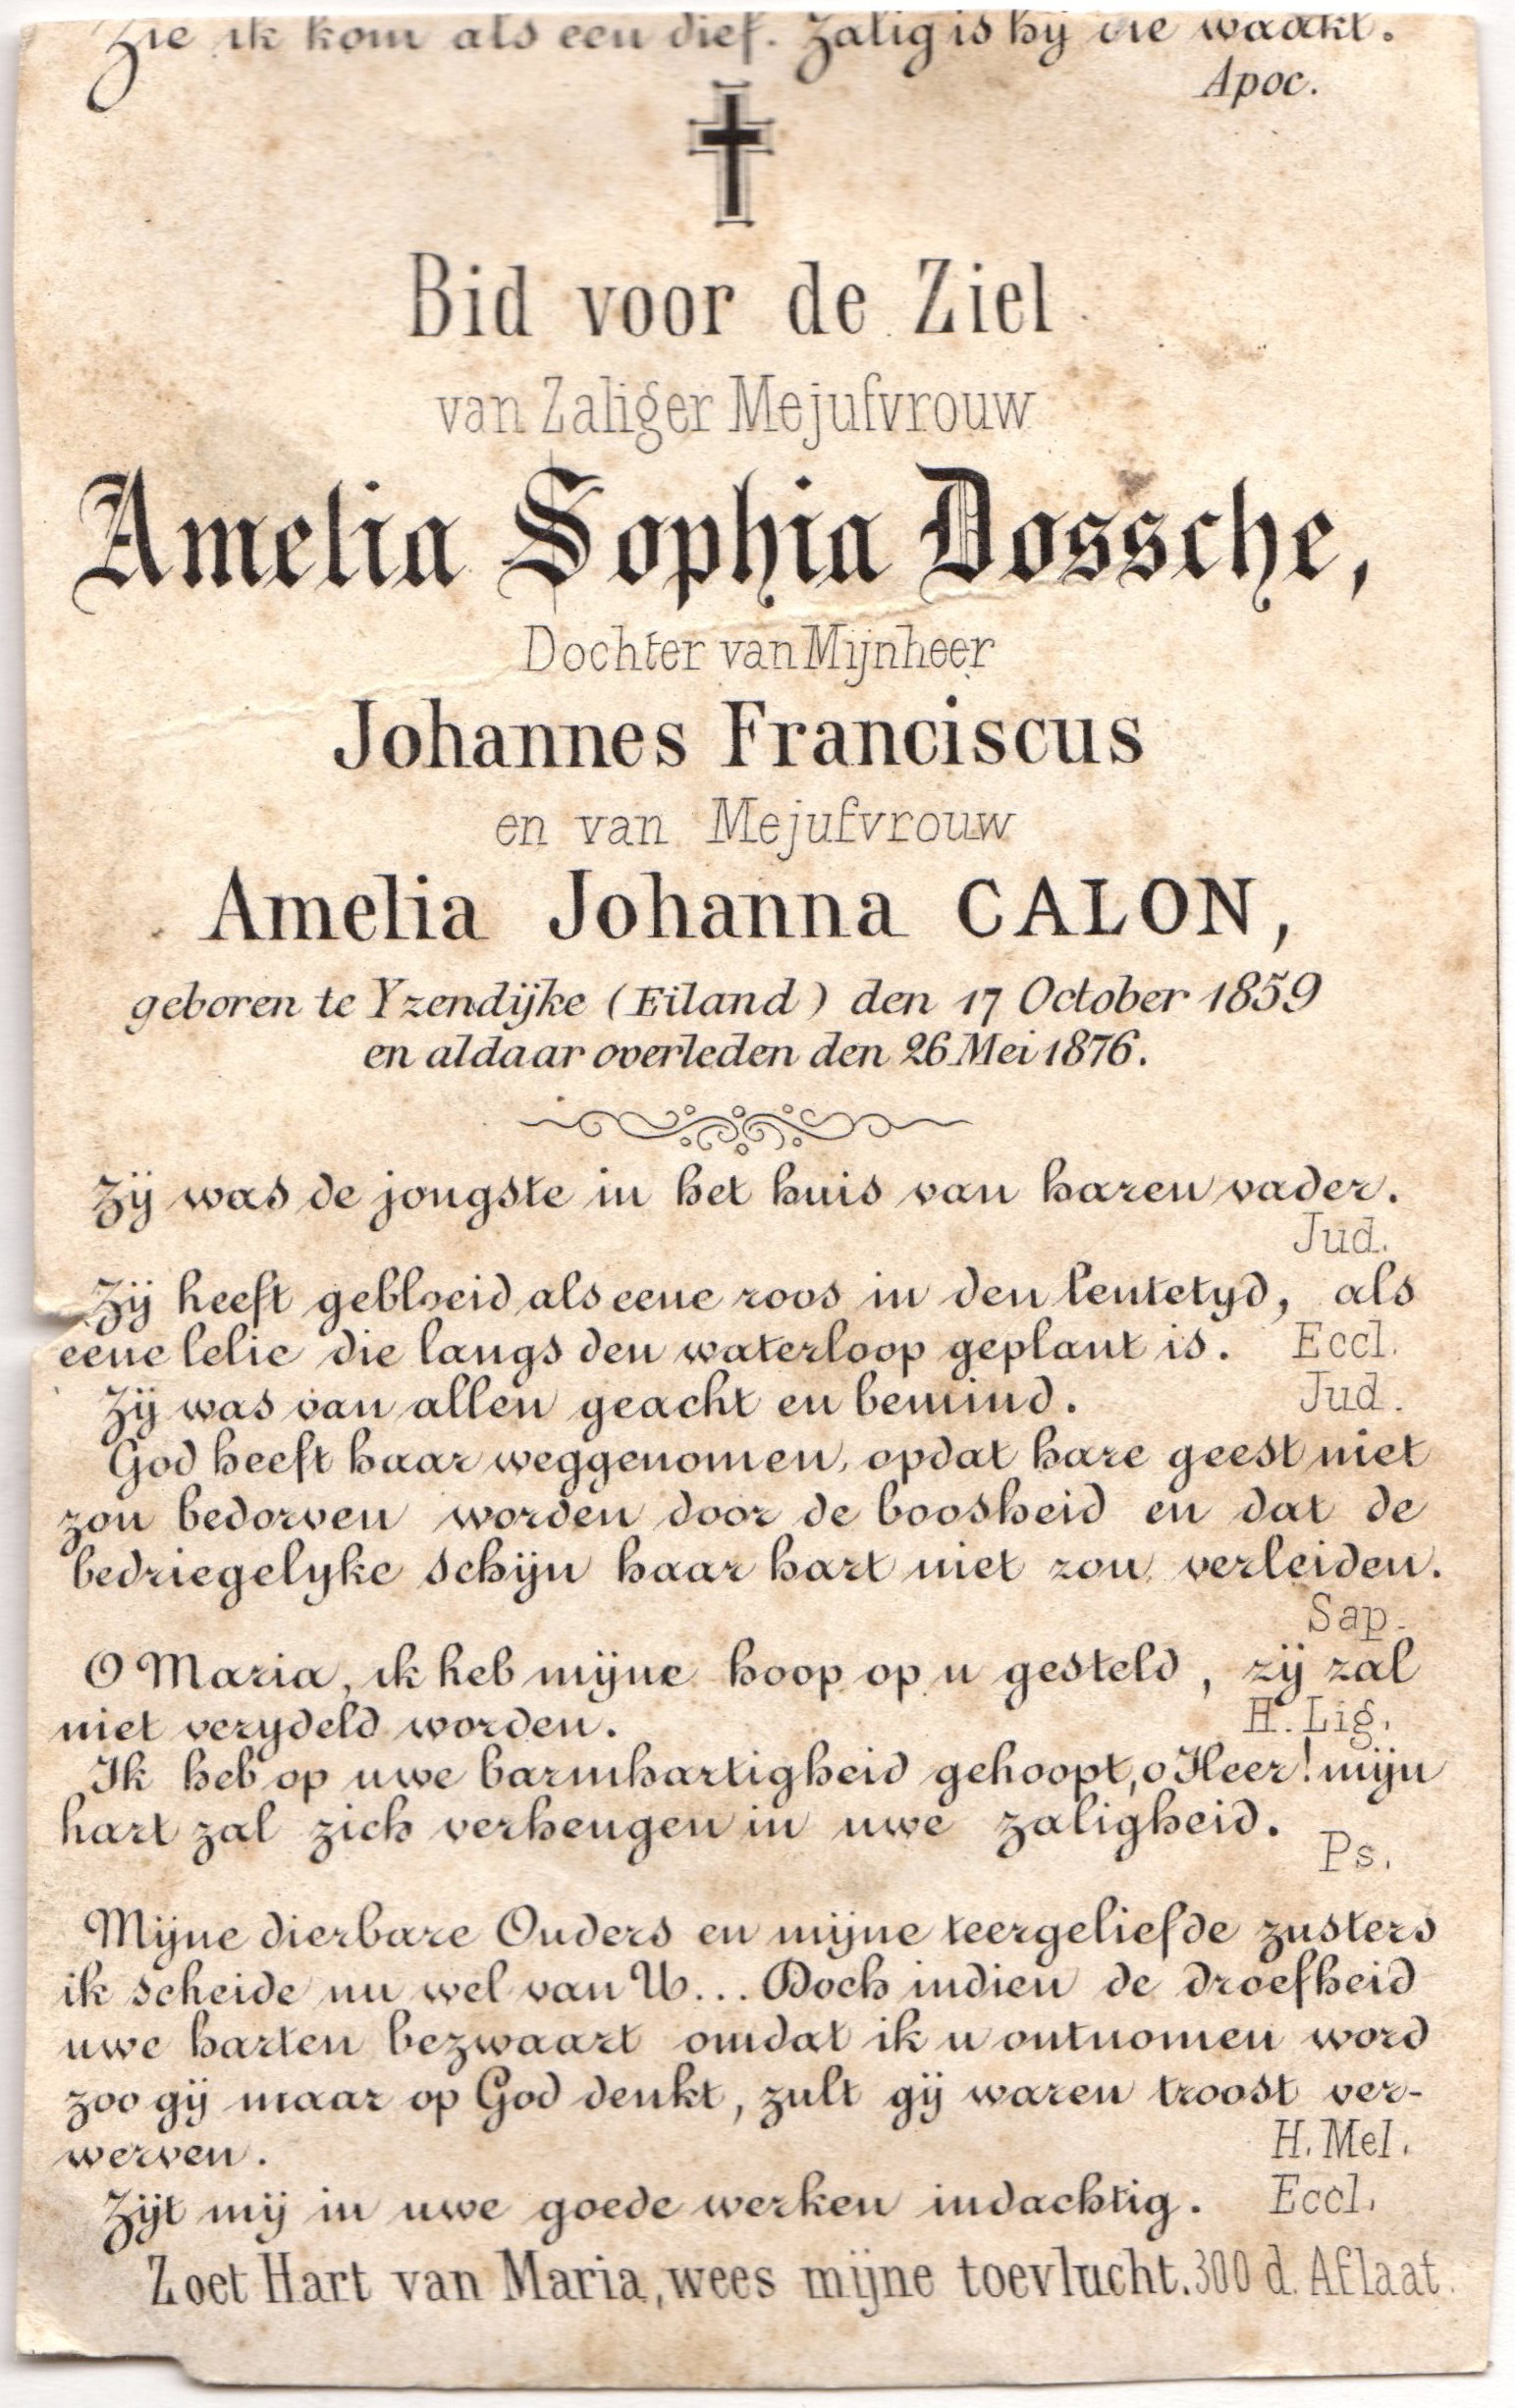 Zie ik kom als een dief. Zalig is hy die waakt.
Apoc.
Bid voor de Ziel
van Zaliger Mejufvrouw
Amelia Sophia Dossche,
Dochter van Mijnheer
Johannes Franciscus
en van Mejufvrouw
Amelia Johanna CALON,
geboren te Yzendijke (Eiland) den 17 October 1859
en aldaar overleden den 26 Mei 1876.
Zij was de jongste in het huis van haren vader.
Jud.
Zij heeft gebloeid als eene roos in den lentetyd, als
eene lelie die langs den waterloop geplant is. Eccl.
Zij was van allen geacht en bemind. Jud.
God heeft haar weggenomen, opdat hare geest niet
zou bedorven worden door de boosheid en dat de
bedriegelyke schijn haar hart niet zou verleiden.
Sap.
O Maria, ik heb mijne hoop op u gesteld, zij zal
niet verydeld worden. H. Lig.
Ik heb op uwe barmhartigheid gehoopt, o Heer! mijn
hart zal zich verheugen in uwe zaligheid.
Ps.
Mijne dierbare Ouders en mijne teergeliefde zusters
ik scheide nu wel van U... Doch indien de droefheid
uwe harten bezwaart omdat ik u ontnomen word
zoo gij maar op God denkt, zult gij waren troost ver-
werven. H. Mel.
Zijt mij in uwe goede werken indachtig. Eccl.
Zoet Hart van Maria, wees mijne toevlucht. 300 d. Aflaat.